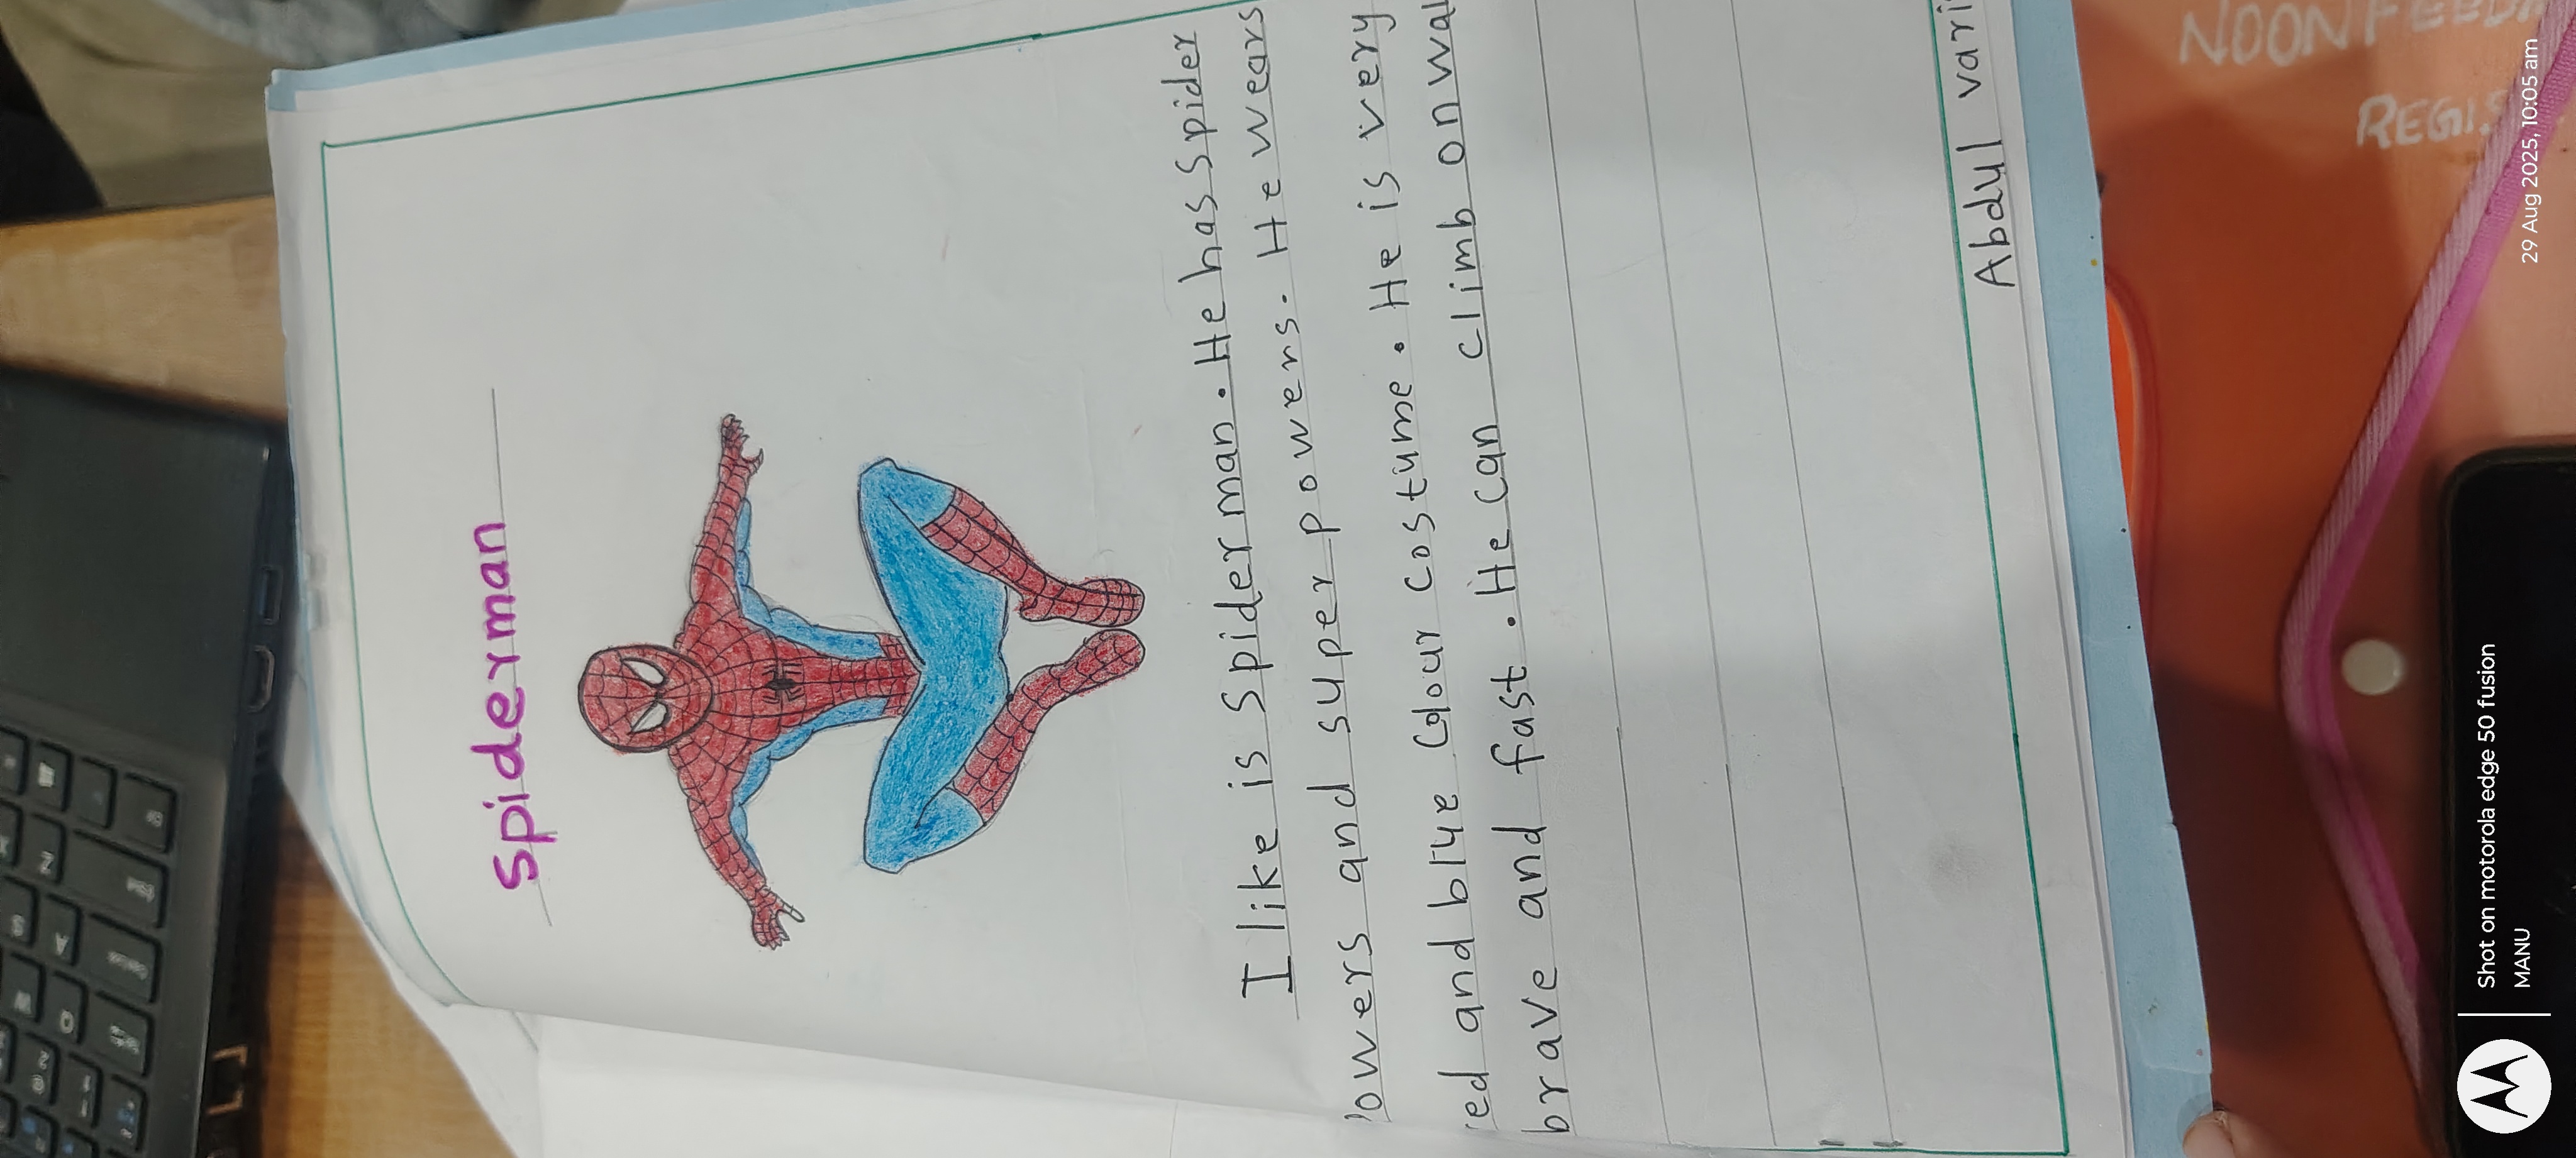 spiderman
I like is Spiderman. He has Spider
owers and super powers. He wears
ed and blue Colour costume. He is very
brave and fast. He can climb on wal
Abdul vari
NOON FEED
REGIS
29 Aug 2025, 10:05 am
Shot on motorola edge 50 fusion
MANU